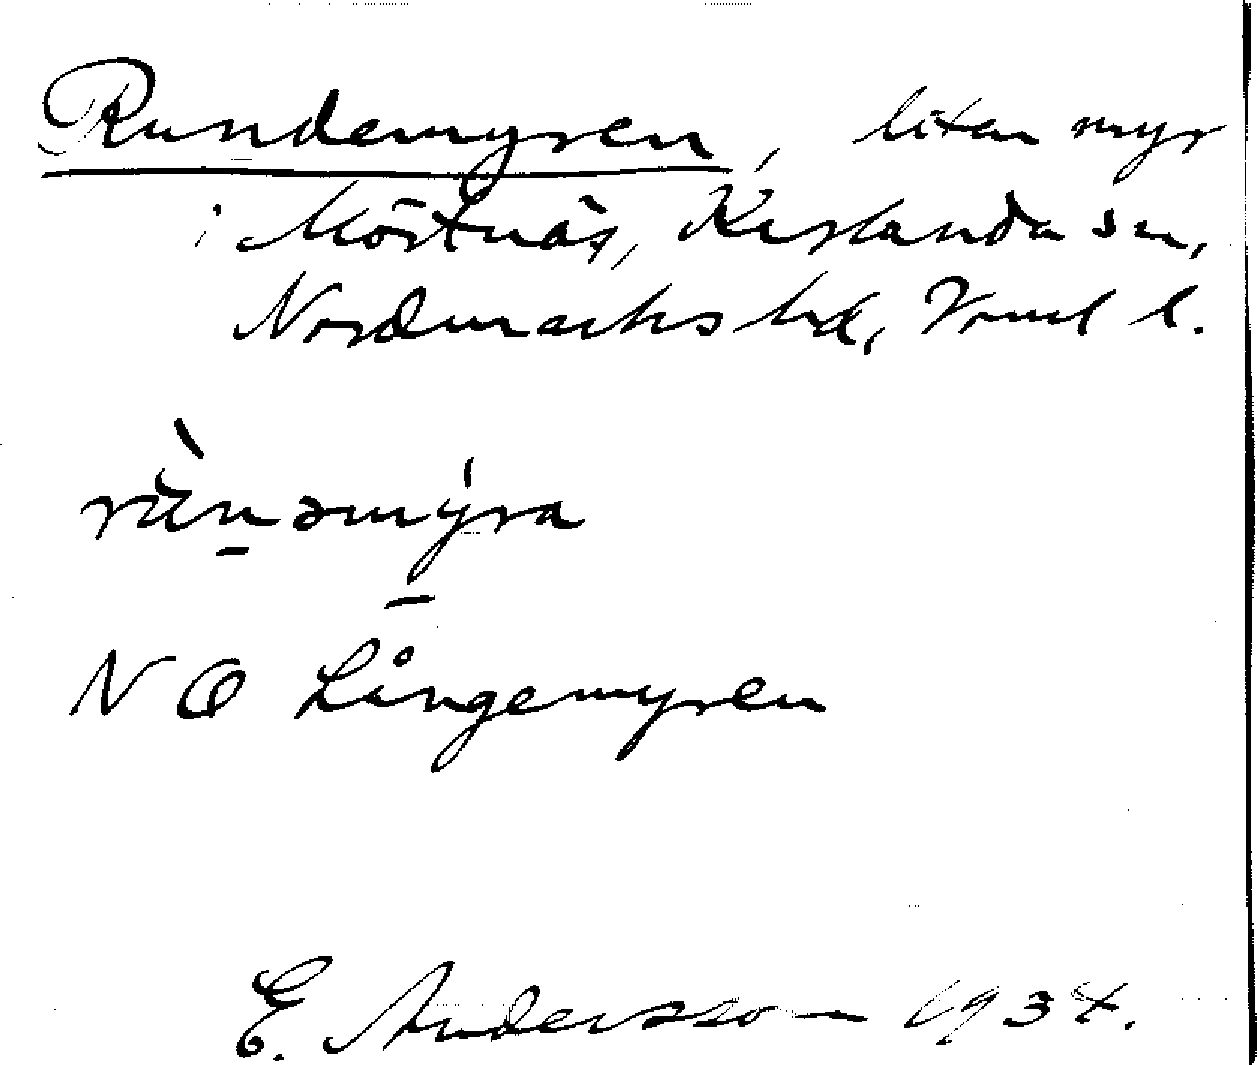 Rundemyren, liten myr
i Mörtnäs, Karlanda sn,
Nordmarks hd, Vrml l.
rùn̠əmý̠ra
NO Långemyren
E. Andersson 1934.